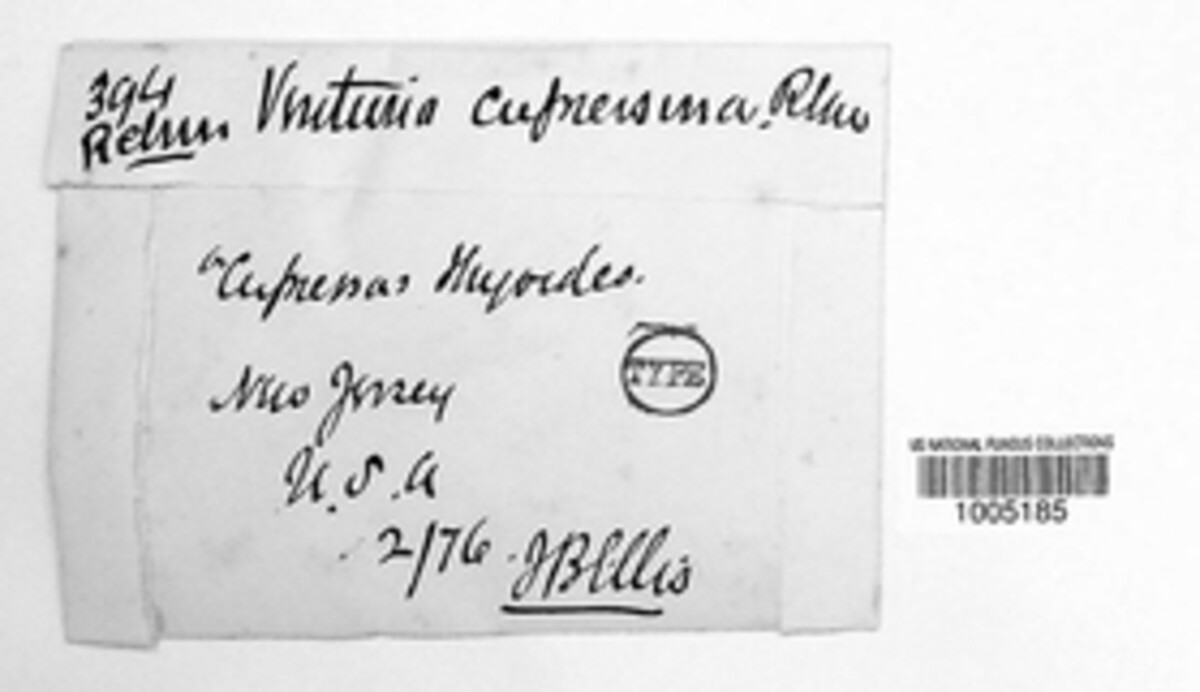 394
Rehm Venturia cupressina. Rehm
on Cupressus thyoides.
TYPE
New Jersey
U.S.A
2/76. JB Ellis
US NATIONAL FUNGUS COLLECTIONS
1005185